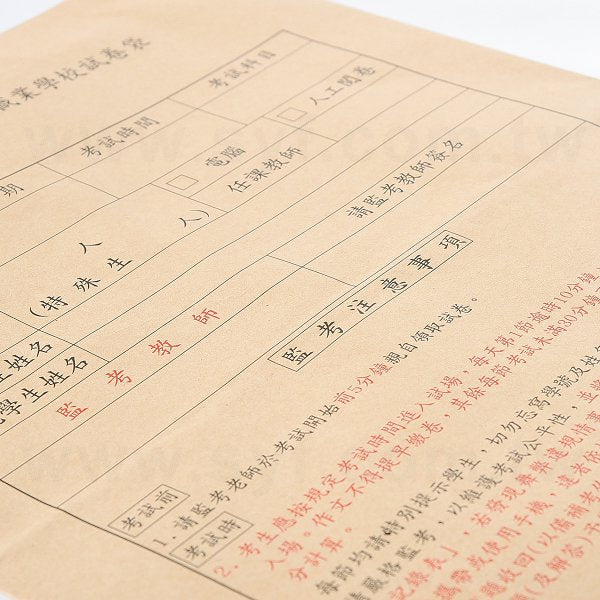 職業學校試卷袋
期
考試時間
考試科目
電腦
□ 人工閱卷
□
任課教師
人
人)
(特殊生
請監考教師簽名
生姓名
學生姓名
監考教師
監考注意事項
考試前
1. 請監考老師於考試開始前5分鐘親自領取試卷。
考試時
2. 考生應按規定考試時間進入試場，每天第1節遲時10分鐘
入場。作文不得提早繳卷，其餘每節考試未滿30分鐘
分計算。
每節均請特別提示學生，切勿忘寫學號及姓名
請嚴格監考，以維護考試公平性，並將
記錄表」，若發現舞弊違規情事
攜帶或使用手機，違者依
題收回(以備補考使
(及解答)